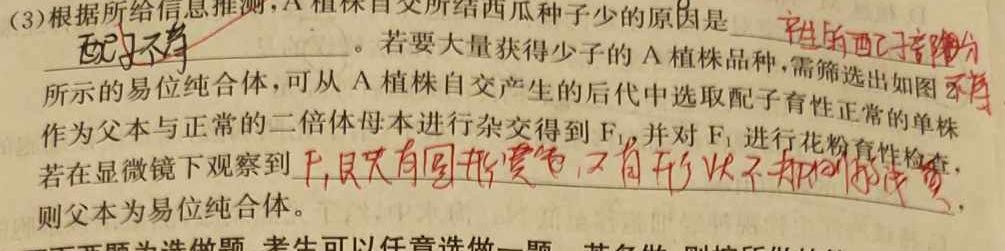 (3)根据所给信息推测,A植株自交所结西瓜种子少的原因是 产生的配子部分
配子不育 。若要大量获得少子的A植株品种,需筛选出如图 不育
所示的易位纯合体,可从A植株自交产生的后代中选取配子育性正常的单株
作为父本与正常的二倍体母本进行杂交得到F₁,并对F₁进行花粉育性检查,
若在显微镜下观察到 有圆形 又有形状不规则 ,
则父本为易位纯合体。
考生可以任意选做一题